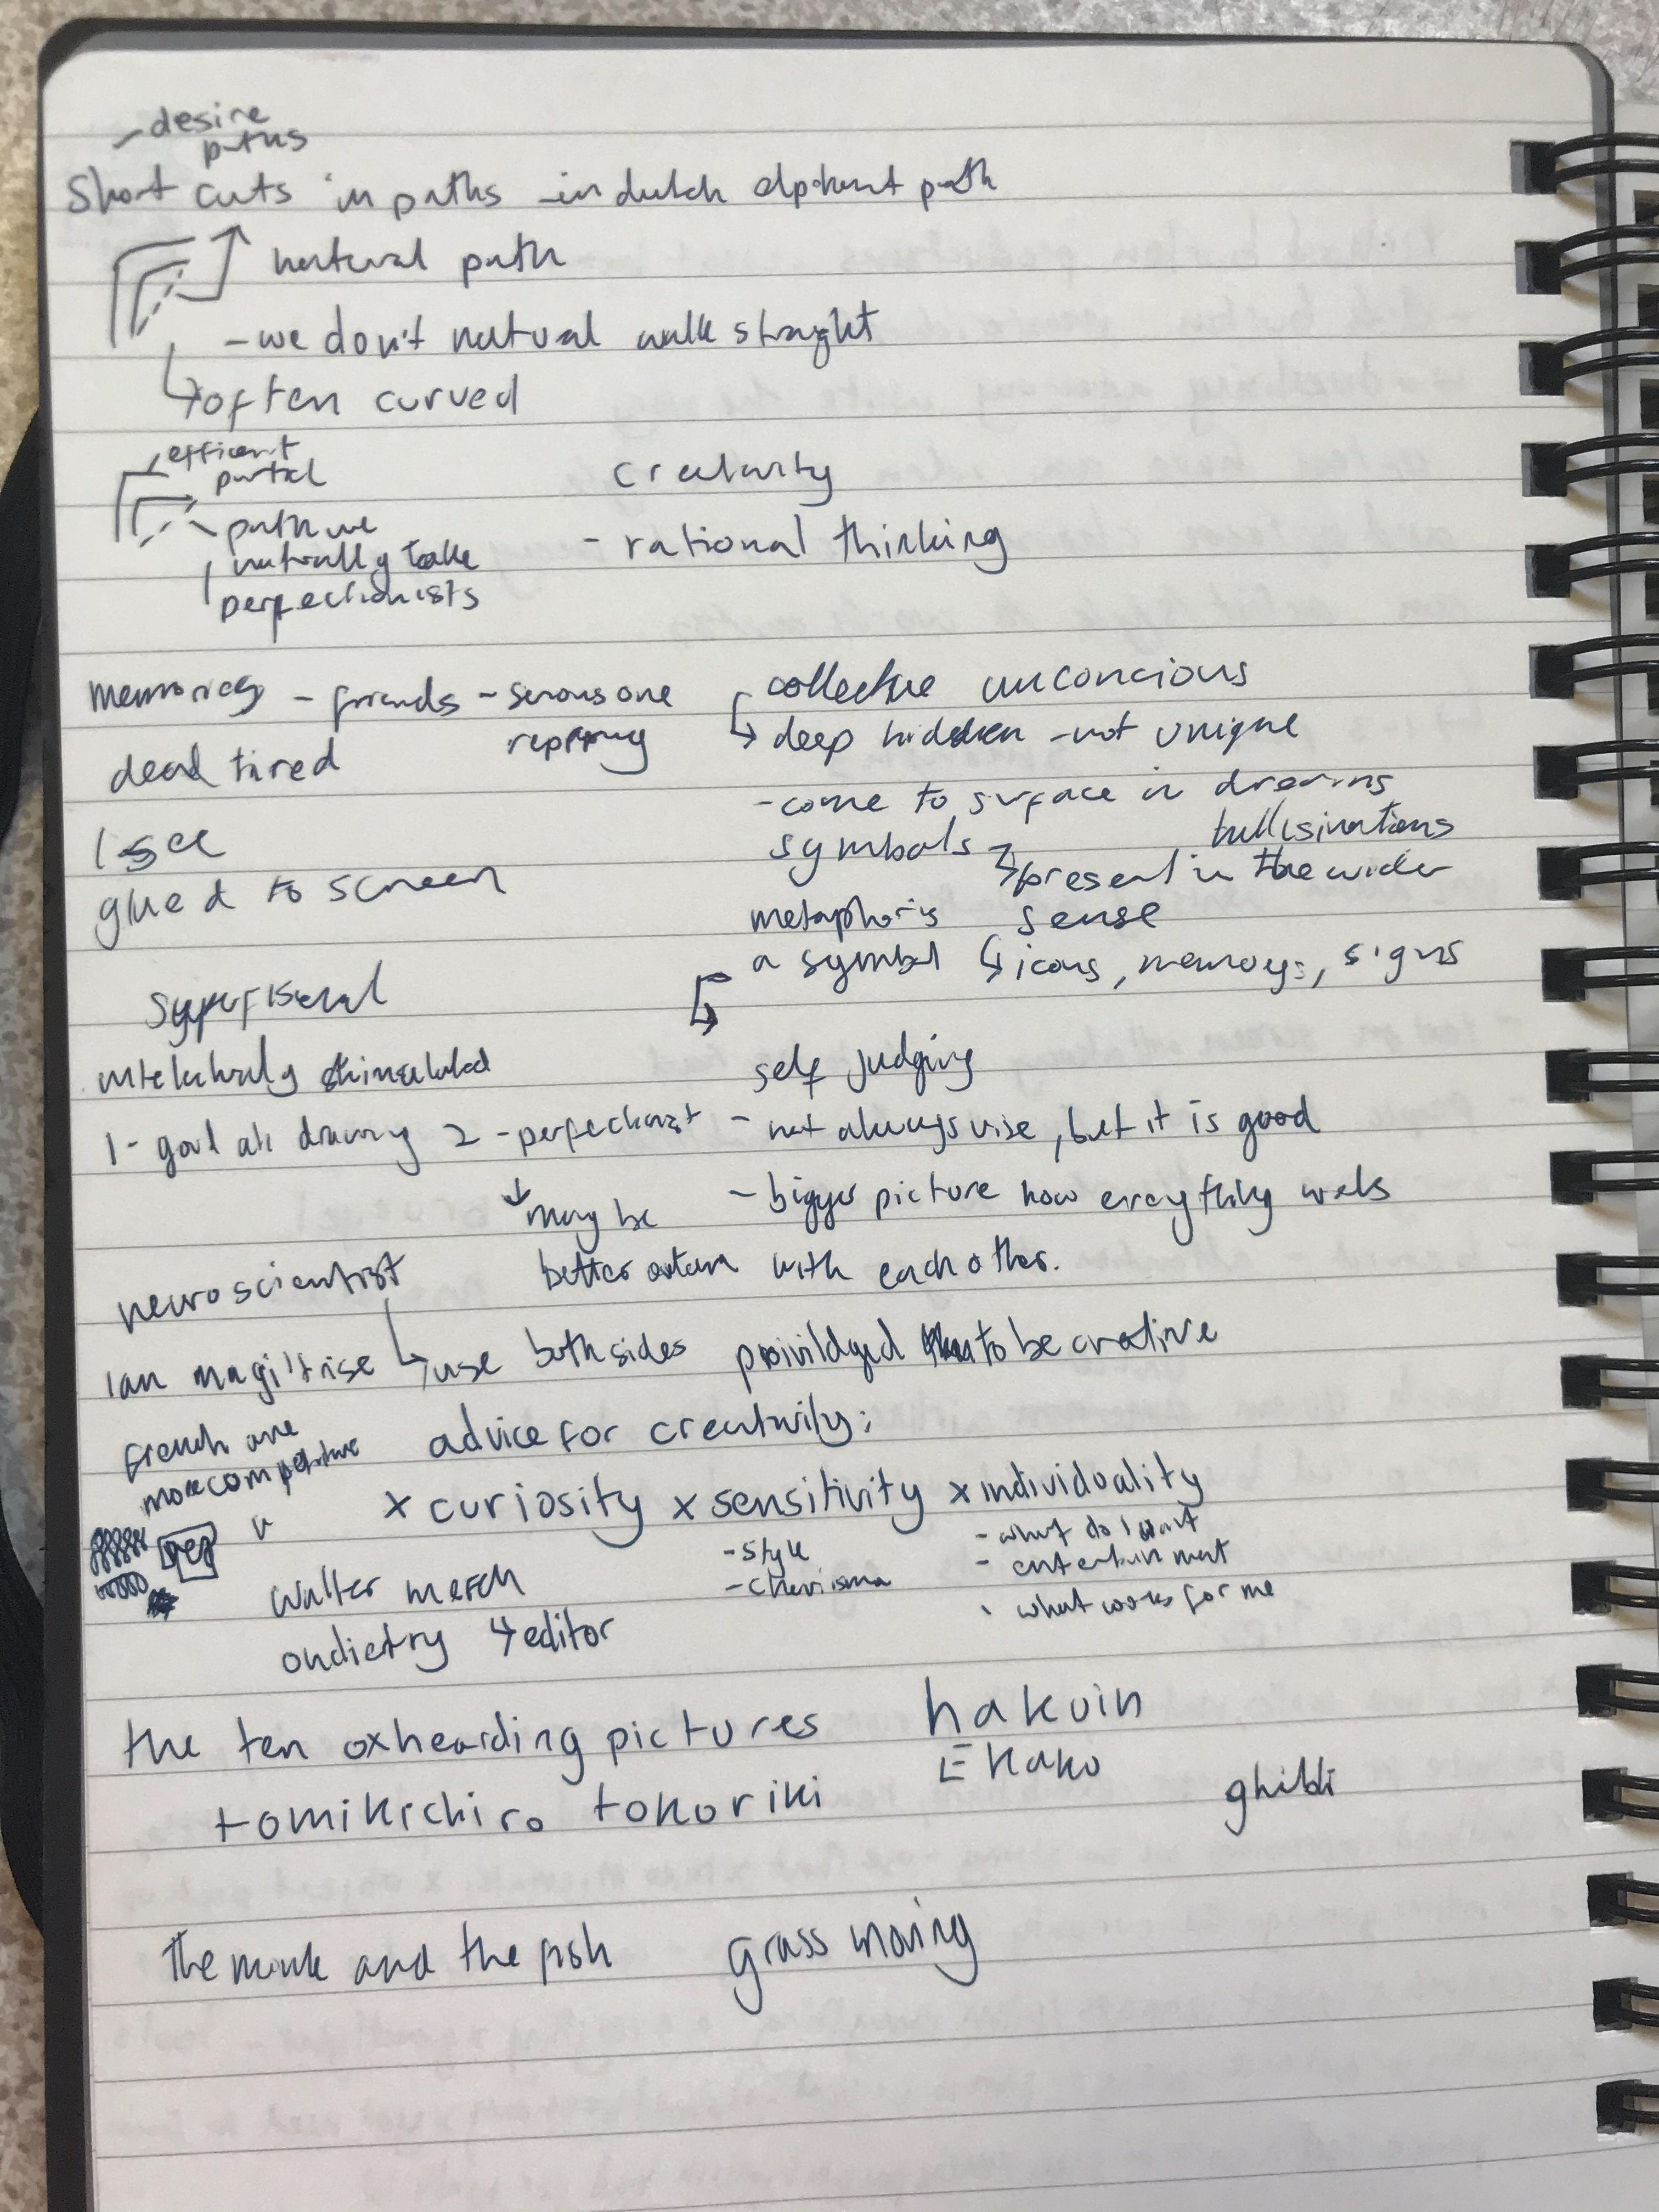 - desire
paths
Short cuts in paths - in dutch elphent path
natural path
- we don't natural walk straght
often curved
efficent
partal
path we
naturally take
perfectionists
creativity
- rational thinking
memories - friends - serous one
dead tired
I see
glued to screen
collective unconcious
deep hidden - not unique
- come to surface in dreams
hallisinations
symbols
present in the wider
sense
metaphor is
a symbol
icons, memorys, signs
self judging
- not always wise, but it is good
- bigger picture how everything works
with each other.
1 - goal drawing 2 - perfectionist
may be
better
neuroscientist
use both sides
privildged to be creative
Ian magiltrise
french are
more competative
advice for creativity:
x curiosity x sensitivity x individuality
- style
- cherisma
- what do I want
- entertainment
- what works for me
yes
walter merch
editor
the ten oxhearding pictures
tomikichiro tokoriki
hakuin
Ekaku
ghibli
The monk and the fish
grass moving